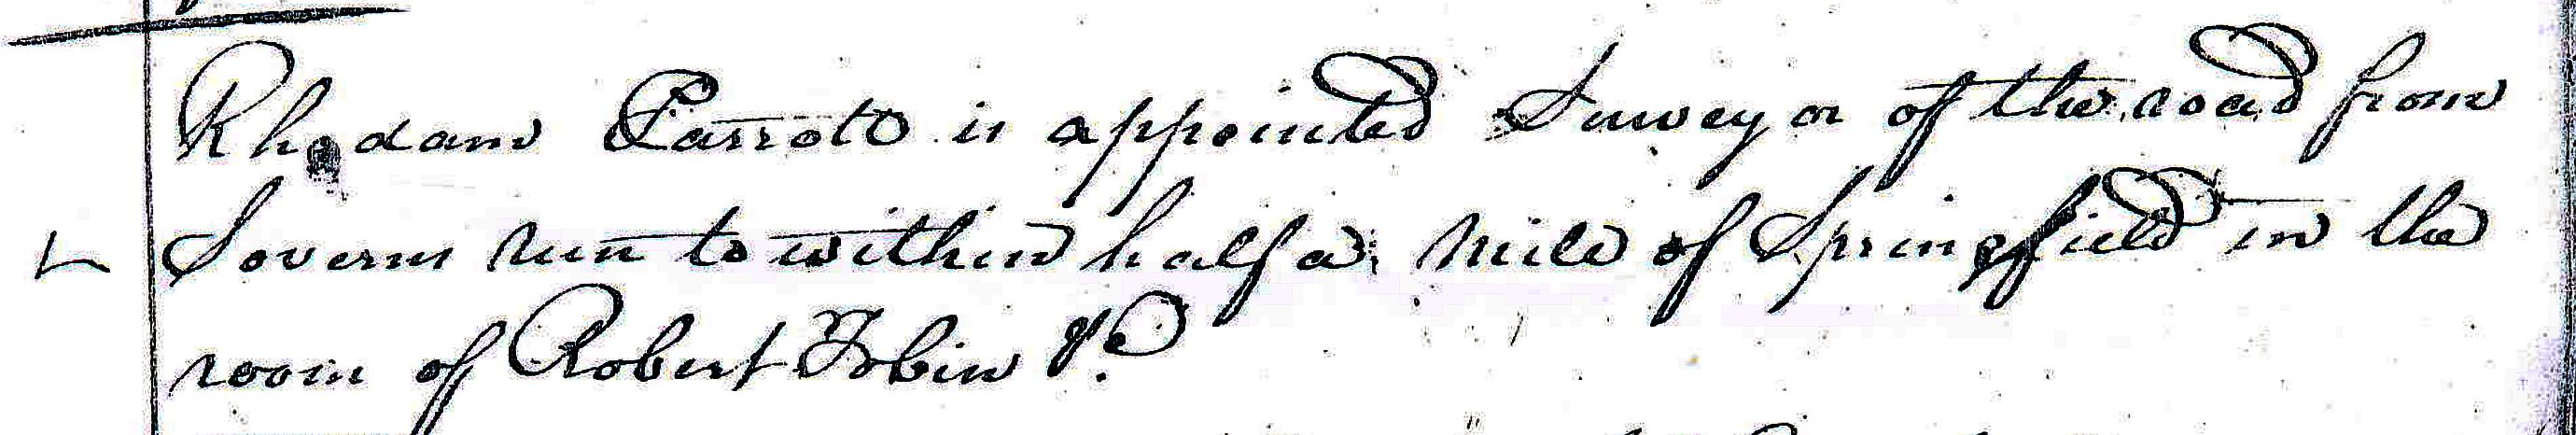 Rhodam Parrott is appointed Surveyor of the road from
Soverns run to within half a Mile of Springfield in the
room of Robert Tobin &c.